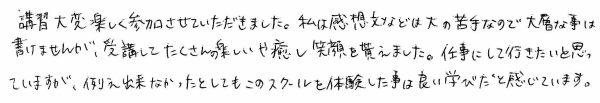 講習大変楽しく参加させていただきました。私は感想文などは大の苦手なので大層な事は
書けませんが、受講してたくさんの楽しいや癒し笑顔を貰えました。仕事にして行きたいと思っ
ていますが、例え出来なかったとしてもこのスクールを体験した事は良い学びだと感じています。